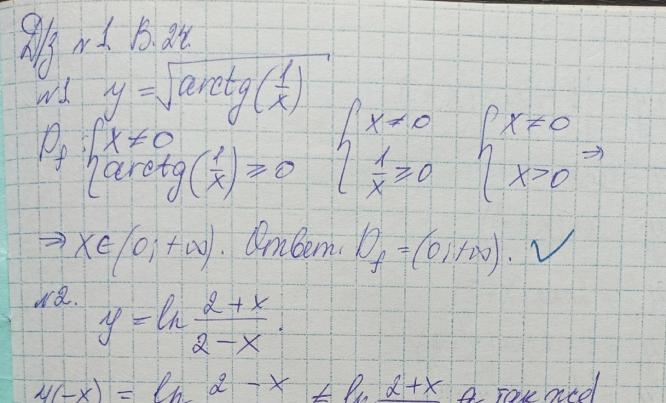 Д/з №1 В.24.
№1 y = √arctg(1/x)
D_f: { x ≠ 0 { x ≠ 0 { x ≠ 0
arctg(1/x) ≥ 0 1/x ≥ 0 x > 0 ⇒
⇒ x ∈ (0; +∞). Ответ: D_f = (0; +∞). ✓
№2.
y = ln (2+x)/(2-x).
y(-x) = ln 2 - x ≠ ln 2+x